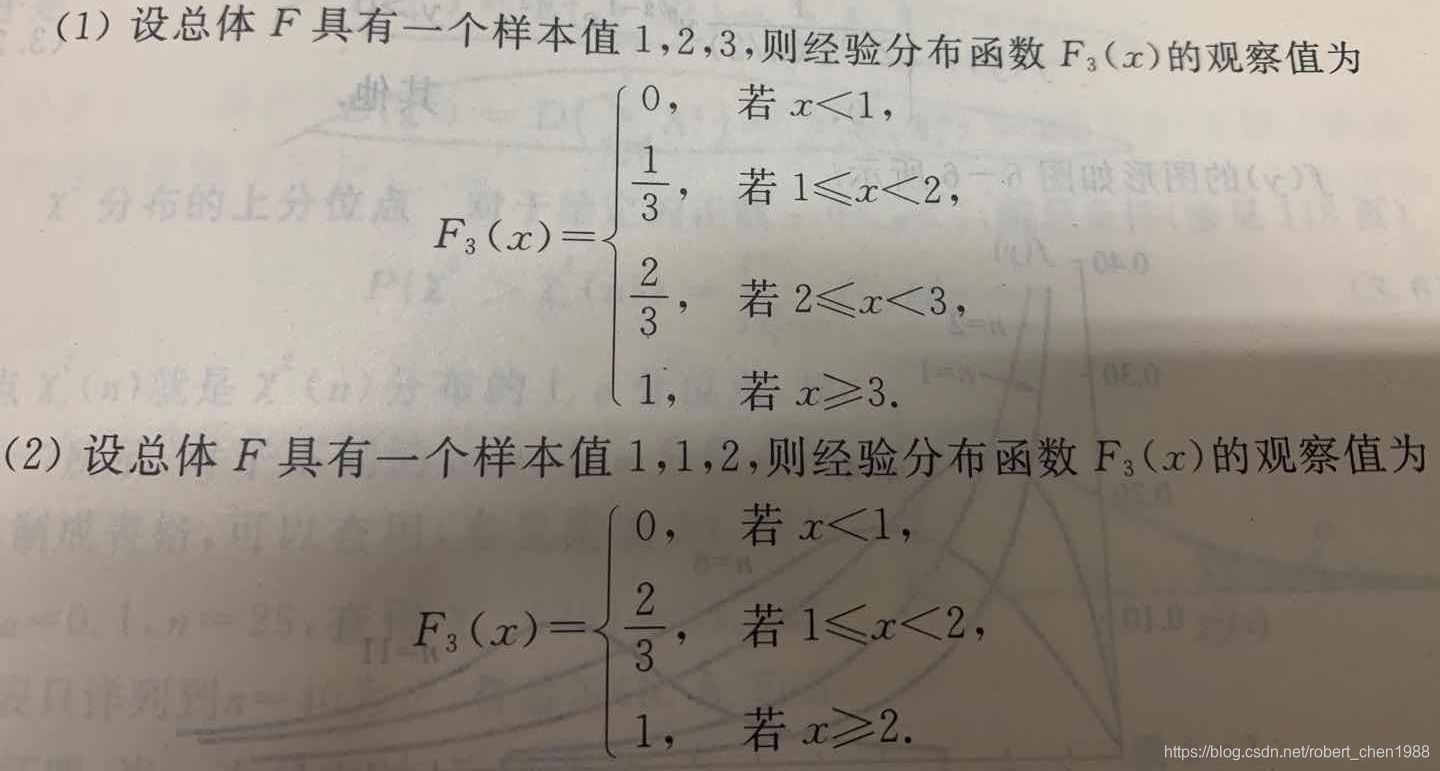 (1) 设总体 F 具有一个样本值 1,2,3,则经验分布函数 F₃(x)的观察值为
F₃(x)=
0, 若 x<1,
1/3, 若 1⩽x<2,
2/3, 若 2⩽x<3,
1, 若 x⩾3.
(2) 设总体 F 具有一个样本值 1,1,2,则经验分布函数 F₃(x)的观察值为
F₃(x)=
0, 若 x<1,
2/3, 若 1⩽x<2,
1, 若 x⩾2.
https://blog.csdn.net/robert_chen1988